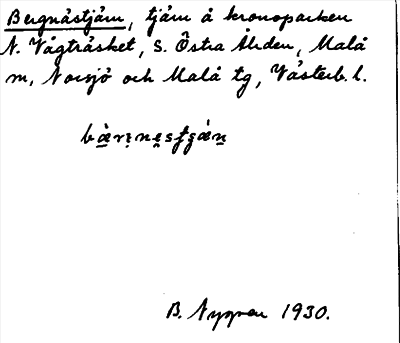 Bergnästjärn, tjärn å kronoparken
N. Vägträsket, S. Östra Åliden, Malå
m, Norsjö och Malå tg, Västerb. l.
B. Nygren 1930.